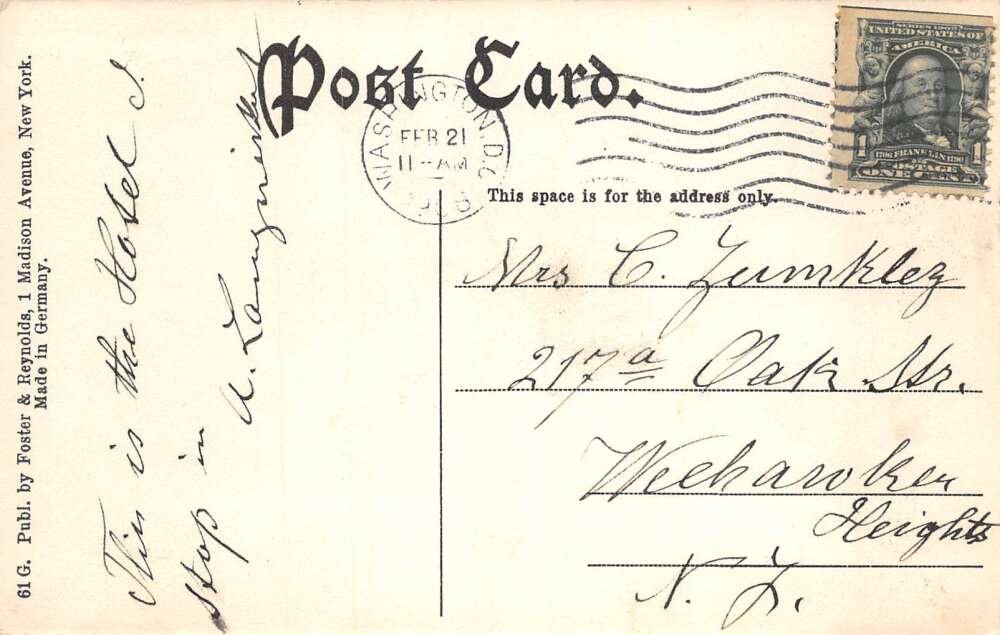 Post Card.
WASHINGTON, D.C.
FEB 21
11-AM
1908
SERIES 1902
UNITED STATES OF
AMERICA
1 1
1706 FRANKLIN 1790
POSTAGE
ONE CENT
This space is for the address only.
Mrs C. Zumklez
217a Oak Str.
Weehawken
Heights
N. J.
This is the Hotel I
stop in
A.
61 G. Publ. by Foster & Reynolds, 1 Madison Avenue, New York.
Made in Germany.